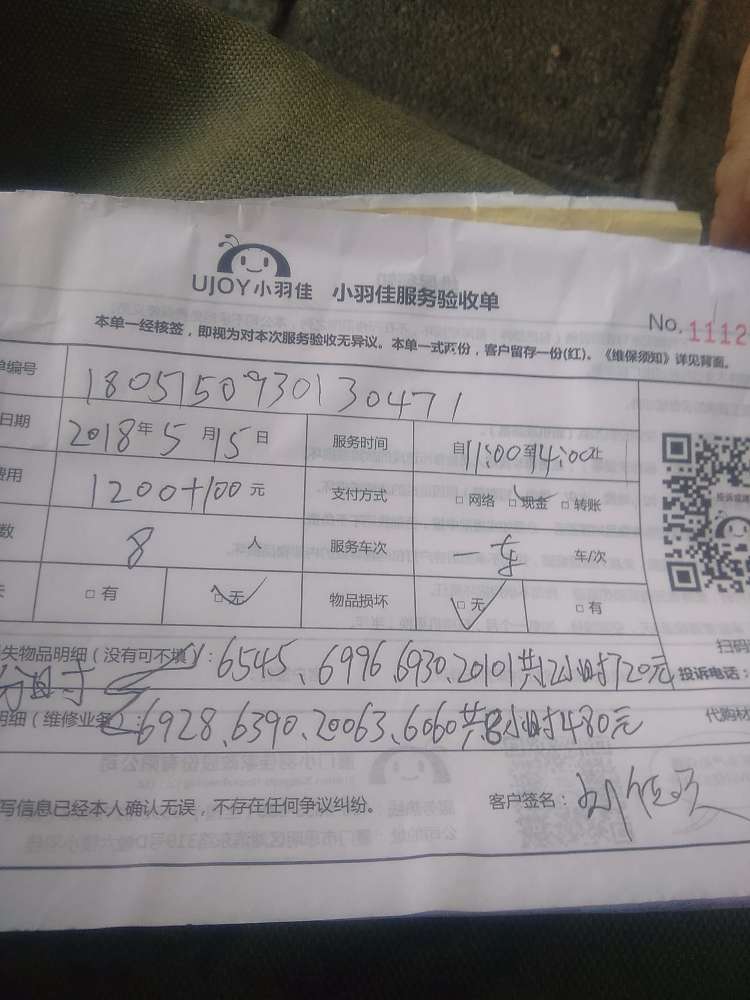 UJOY小羽佳 小羽佳服务验收单
No. 1112
本单一经核签，即视为对本次服务验收无异议。本单一式两份，客户留存一份(红)。《维保须知》详见背面。
单编号 1805150930130471
日期 2018年5月15日 服务时间 自11:00至14:00止
费用 1200+100元 支付方式 □网络 □现金 □转账
数 8 人 服务车次 一车 车/次
失 □有 □无 物品损坏 □无 □有
失物品明细（没有可不填）：6545、6996 6930、20101共12小时720元
扫码
投诉电话：
明细（维修业务）：6928、6390、20063、6060共8小时480元
代购材
写信息已经本人确认无误，不存在任何争议纠纷。 客户签名：